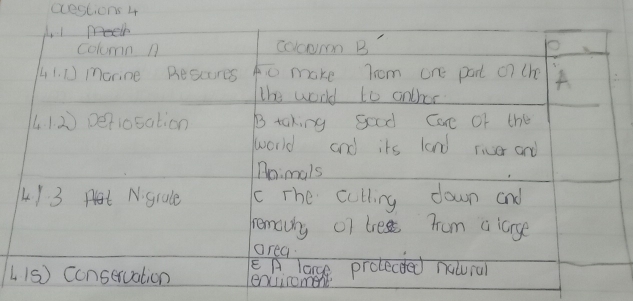 Questions 4
4.1 Mach
Column A Column B
4.1.1) Marine Resoures A To make from one part of the
the world to onther
A
4.1.2) Deforosation B taking good Care of the
world and its land river and
Animals
4.1.3 Migrate C The Cutting down and
removing of trees from a large
area.
4.1.5) Conservation E A large protected natural
enviroment